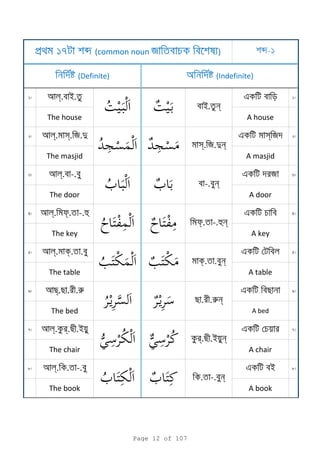 প্রথম ১৭টা শব্দ (common noun জাতিবাচক বিশেষ্য) শব্দ-১
নির্দিষ্ট (Definite) অনির্দিষ্ট (Indefinite)
আল্.বাই.তু اَلْبَيْتُ بَيْتٌ বাই.তুন্ একটি বাড়ি
The house A house
আল্.মাস্.জি.দু اَلْمَسْجِدُ مَسْجِدٌ মাস্.জি.দুন্ একটি মাসজিদ
The masjid A masjid
আল্.বা-.বু اَلْبَابُ بَابٌ বা-.বুন্ একটি দরজা
The door A door
আল্.মিফ্.তা-.হু اَلْمِفْتَاحُ مِفْتَاحٌ মিফ্.তা-.হুন্ একটি চাবি
The key A key
আল্.মাক্.তা.বু اَلْمَكْتَبُ مَكْتَبٌ মাক্.তা.বুন্ একটি টেবিল
The table A table
আছ্.ছা.রী.রু اَلسَّرِيْرُ سَرِيْرٌ ছা.রী.রুন্ একটি বিছানা
The bed A bed
আল্.কুর্.ছী.ইয়ু اَلْكُرْسِيُّ كُرْسِيٌّ কুর্.ছী.ইয়ুন্ একটি চেয়ার
The chair A chair
আল্.কি.তা-.বু اَلْكِتَابُ كِتَابٌ কি.তা-.বুন্ একটি বই
The book A book
Page 12 of 107